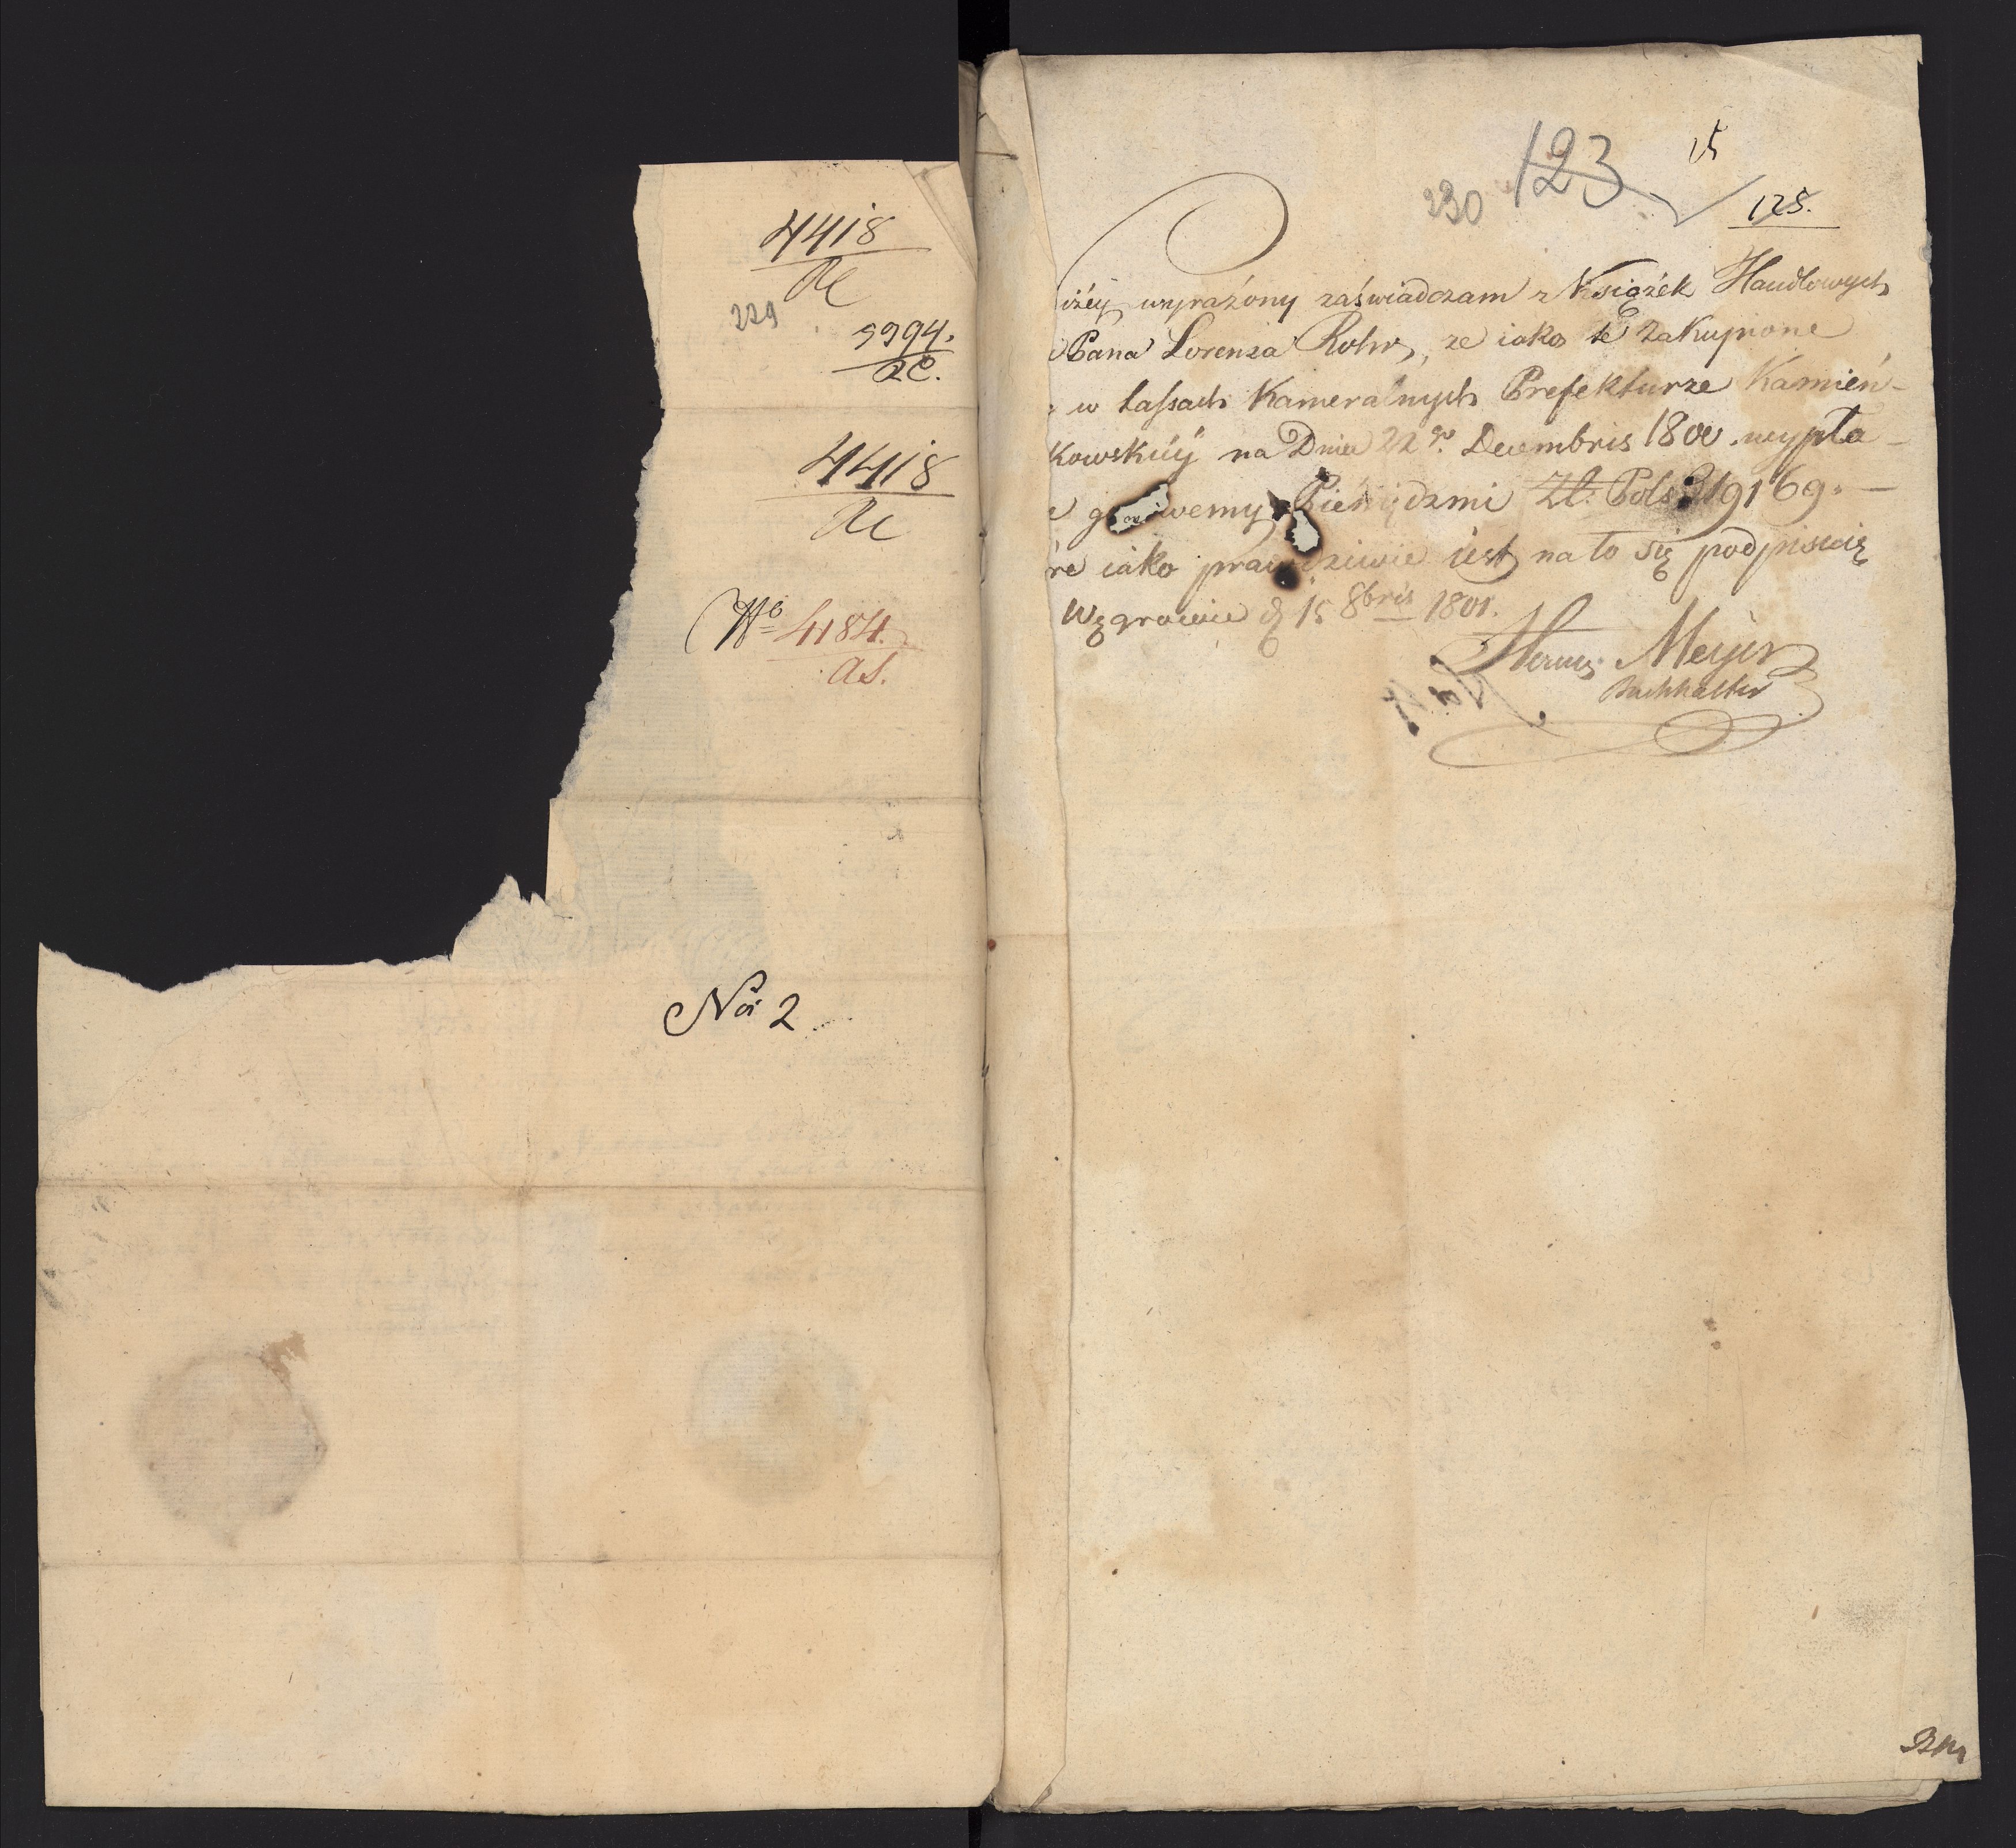 4418
229
5994.
4418
No 4184.
as.
No 2
230 123 15
125.
iżéy wyrażony zaświadczam z Książek Handlowych
Pana Lorenza Rohn, ze iako te zakupione
w Lassach Kameralnych Prefekturze Kamień-
kowskiéy na Dniu 22go Decembris 1800 wypła-
Pieniędzmi Zł: Pols: 219169.
re iako prawdziwie iest, na to się podpisuię
Węgrowie d 15 8bris 1801.
Meijer
Buchhalter